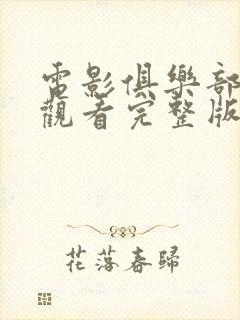 電影俱樂部
觀看完整版
花落春歸